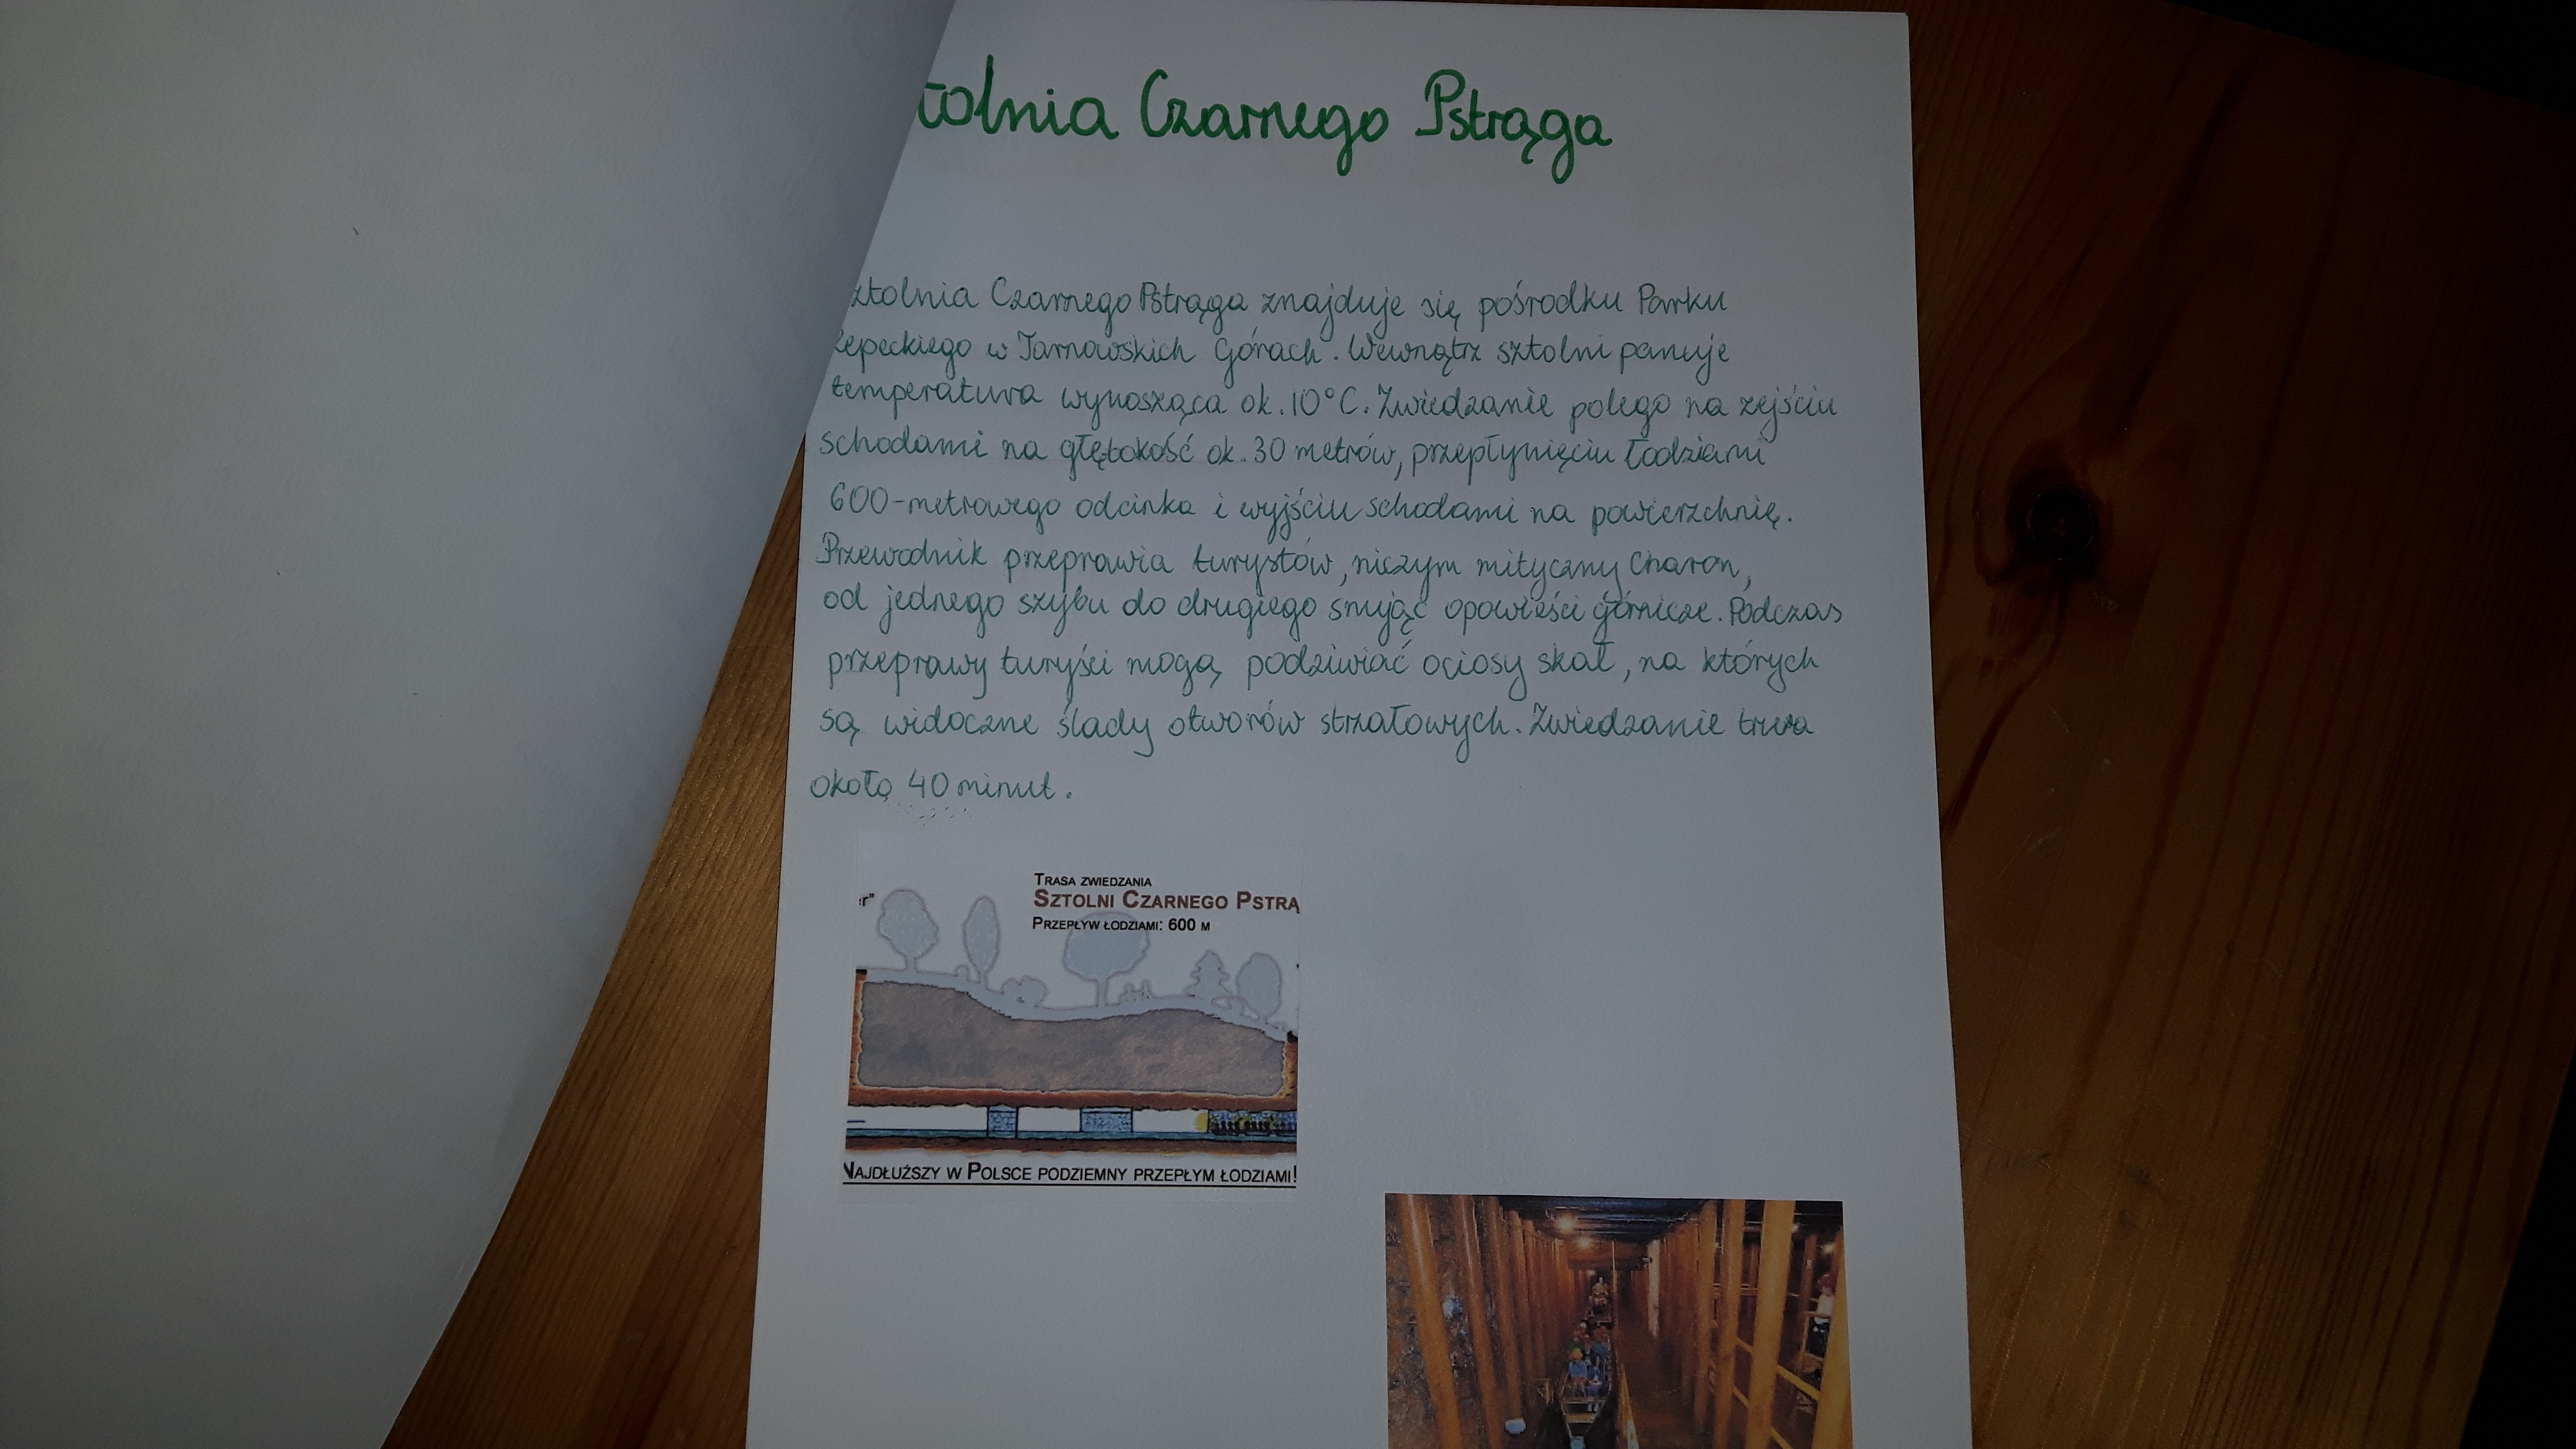 tolnia Czarnego Pstrąga
ztolnia Czarnego Pstrąga znajduje się pośrodku Parku
Repeckiego w Tarnowskich Górach. Wewnątrz sztolni panuje
temperatura wynosząca ok. 10°C. Zwiedzanie polega na zejściu
schodami na głębokość ok. 30 metrów, przepłynięciu łodziami
600-metrowego odcinka i wyjściu schodami na powierzchnię.
Przewodnik przeprawia turystów, niczym mityczny Charon,
od jednego szybu do drugiego snując opowieści górnicze. Podczas
przeprawy turyści mogą podziwiać ociosy skał, na których
są widoczne ślady otworów strzałowych. Zwiedzanie trwa
około 40 minut.
TRASA ZWIEDZANIA
SZTOLNI CZARNEGO PSTRĄ
er"
PRZEPŁYW ŁODZIAMI: 600 M
NAJDŁUŻSZY W POLSCE PODZIEMNY PRZEPŁYM ŁODZIAMI!